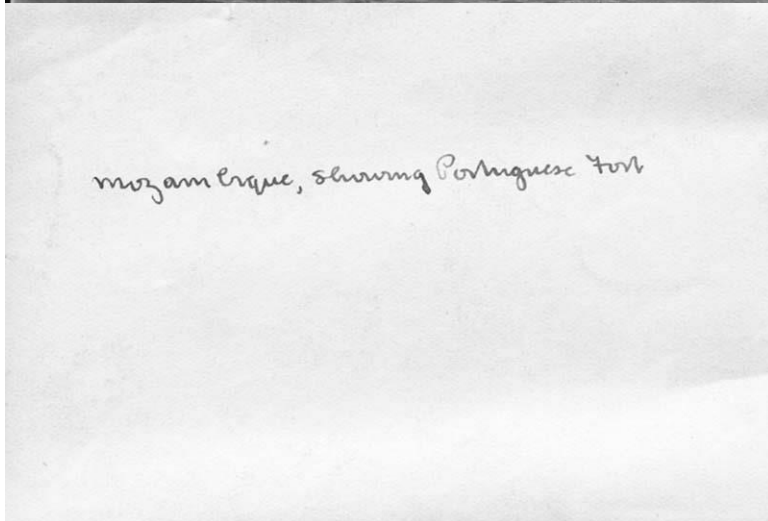 Mozambique, showing Portuguese Fort